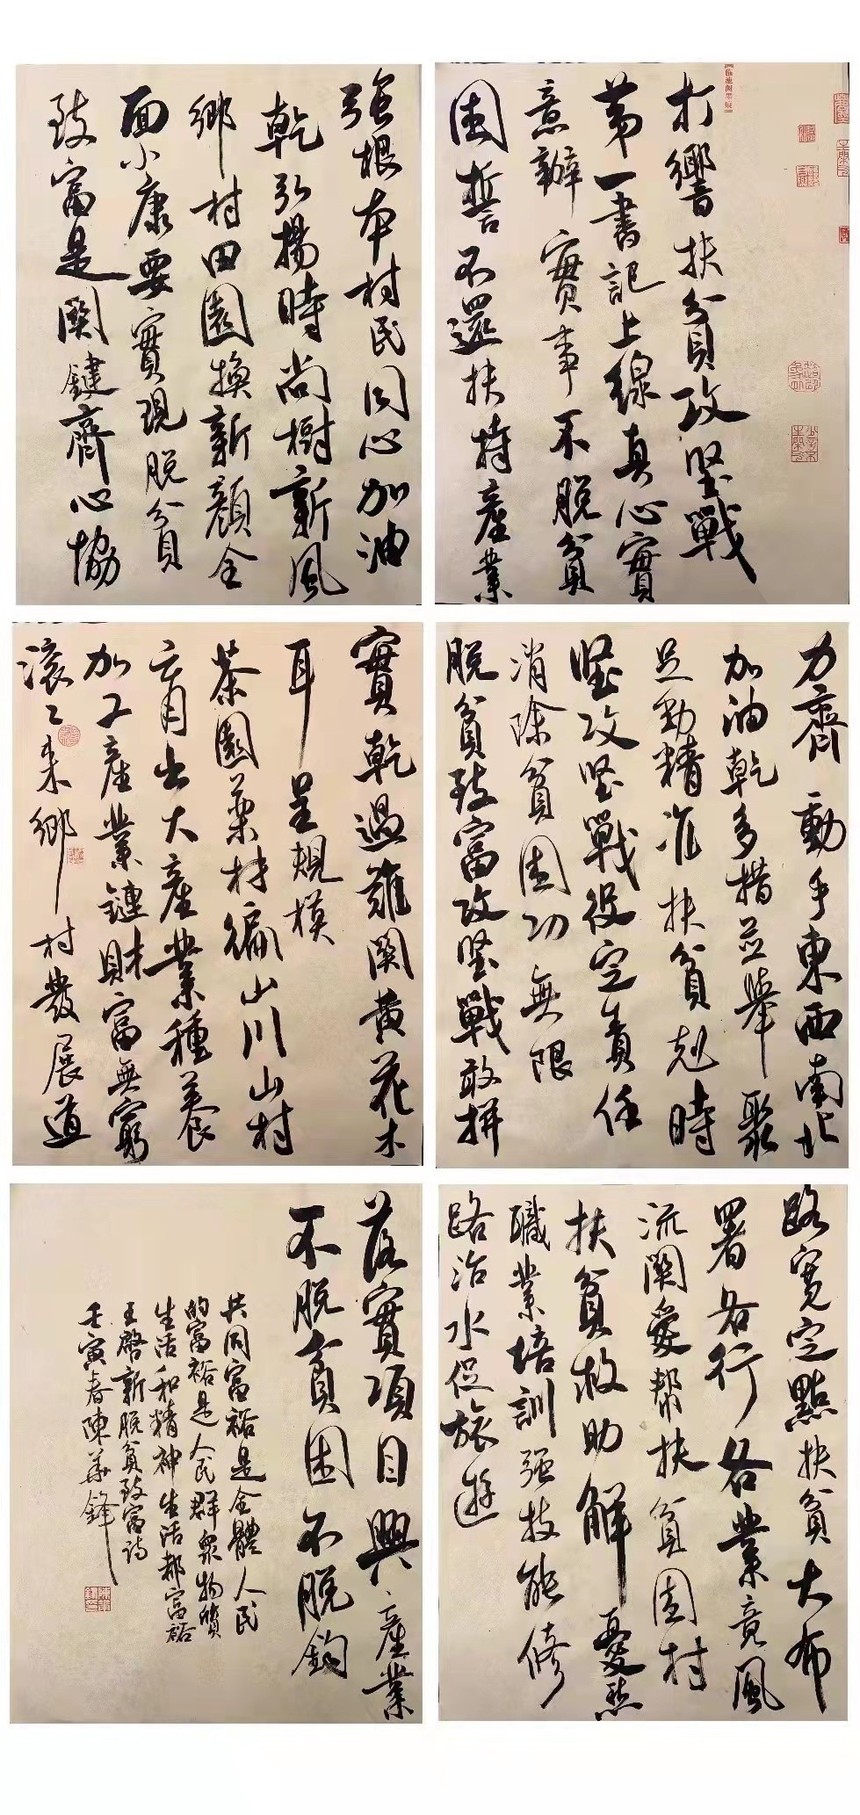 打響扶貧攻堅戰
第一書記上線真心實
意辦實事不脫貧
困誓不還扶持產業
強根本村民同心加油
乾弘揚時尚樹新風
鄉村田園換新顏全
面小康要實現脫貧
致富是關鍵齊心協
力齊動手東西南北
加油乾多措並舉聚
足勁精准扶貧尅時
堅攻堅戰役定責任
消除貧困功無限
脫貧致富攻堅戰敢拼
實乾過難關黃花木
耳呈規模
茶園藥材遍山川山村
育出大產業種養
加工產業鏈財富無窮
滾滾來鄉村發展道
路寬定點扶貧大布
署各行各業竟風
流關愛幫扶貧困村
扶貧救助解憂愁
職業培訓強技能修
路治水促旅遊
落實項目興產業
不脫貧困不脫鉤
共同富裕是全體人民
的富裕是人民群衆物質
生活和精神生活都富裕
王啓新脫貧致富詩
壬寅春陳華鋒